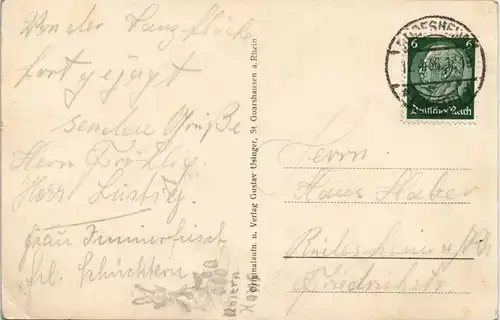 Von der Tanzfläche
fortgejagt
senden Grüße
Herr Fröhlig.
Herr Lustig.
Frau Immerfrisch
Frl. Schüchtern
Originalaufn. u. Verlag Gustav Usinger, St Goarshausen a. Rhein
6 6
Deutsches Reich
Herrn
Hans Haber
Rüdesheim a/Rh
Friedrichstr.